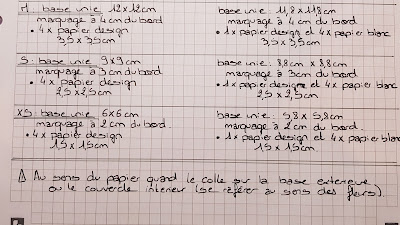 M: base unie 12x12cm
marquage à 4cm du bord
• 4x papier design
3,5 x 3,5cm
base unie: 11,8 x 11,8cm
marquage à 4cm du bord
• 1x papier design et 4x papier blanc
3,5 x 3,5cm
S: base unie 9x9cm
marquage à 3cm du bord
• 4x papier design
2,5 x 2,5cm
base unie: 8,8cm x 8,8cm
marquage à 3cm du bord
• 1x papier design et 4x papier blanc
2,5 x 2,5cm
XS: base unie 6x6cm
marquage à 2cm du bord
• 4x papier design
1,5 x 1,5cm
base unie: 5,8 x 5,8cm
marquage à 2cm du bord.
• 1x papier design et 4x papier blanc
1,5 x 1,5cm
Au sens du papier quand je colle sur la base exterieure
ou le couvercle interieur (se référer au sens des fleurs).